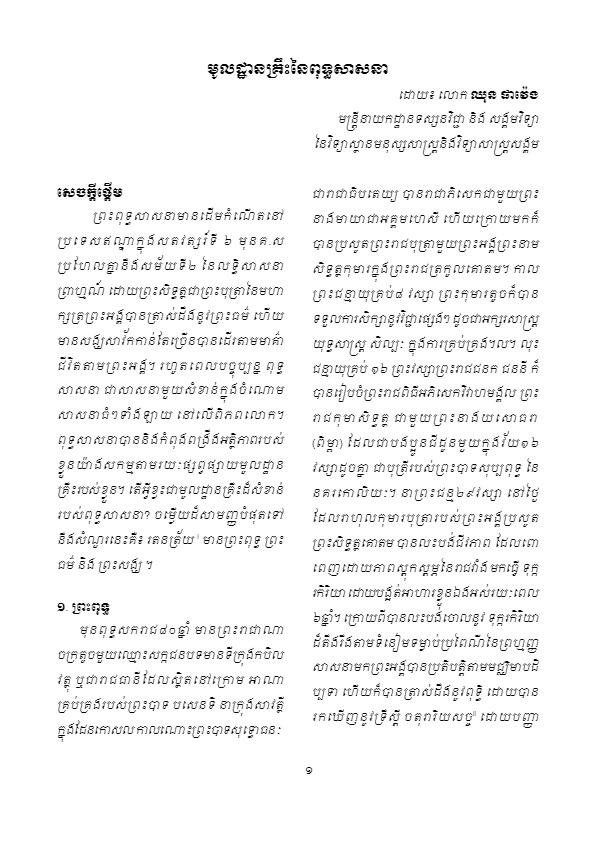 មូលដ្ឋានគ្រឹះនៃពុទ្ធសាសនា
ដោយ៖ លោក ឈុន ផាវ៉េង
មន្ត្រីនាយកដ្ឋានទស្សនវិជ្ជា និង សង្គមវិទ្យា
នៃវិទ្យាស្ថានមនុស្សសាស្ត្រនិងវិទ្យាសាស្ត្រសង្គម
សេចក្តីផ្តើម
ព្រះពុទ្ធសាសនាមានដើមកំណើតនៅ
ប្រទេសឥណ្ឌាក្នុងសតវត្សរ៍ទី ៦ មុនគ.ស
ប្រហែលគ្នានឹងសម័យទី២ នៃលទ្ធិសាសនា
ព្រាហ្មណ៍ ដោយព្រះសិទ្ធត្ថជាព្រះបុត្រានៃមហា
ក្សត្រព្រះអង្គបានត្រាស់ដឹងនូវព្រះធម៌ ហើយ
មានសង្ឃសាវ័កកាន់តែច្រើនបានដើរតាមមាគ៌ា
ជីវិតតាមព្រះអង្គ។ រហូតពេលបច្ចុប្បន្ន ពុទ្ធ
សាសនា ជាសាសនាមួយសំខាន់ក្នុងចំណោម
សាសនាធំៗទាំងឡាយ នៅលើពិភពលោក។
ពុទ្ធសាសនាបាននិងកំពុងពង្រឹងអត្ថិភាពរបស់
ខ្លួនយ៉ាងសកម្មតាមរយៈផ្សព្វផ្សាយមូលដ្ឋាន
គ្រឹះរបស់ខ្លួន។ តើអ្វីខ្លះជាមូលដ្ឋានគ្រឹះដ៏សំខាន់
របស់ពុទ្ធសាសនា? ចម្លើយដ៏សាមញ្ញបំផុតទៅ
នឹងសំណួរនេះគឺ៖ រតនត្រ័យ i មានព្រះពុទ្ធ ព្រះ
ធម៌ និង ព្រះសង្ឃ ។
១. ព្រះពុទ្ធ
មុនពុទ្ធសករាជ៨០ឆ្នាំ មានព្រះរាជាណា
ចក្រតូចមួយឈ្មោះសក្កជនបទមានទីក្រុងកបិល
វត្ថុ ឬជារាជធានីដែលស្ថិតនៅក្រោម អាណា
គ្រប់គ្រងរបស់ព្រះបាទ បសេនទិ នាក្រុងសាវត្ថី
ក្នុងដែនកោសលកាលណោះព្រះបាទសុទ្ធោធនៈ
ជារាជាធិបតេយ្យ បានរាជាភិសេកជាមួយព្រះ
នាងមាយាជាអគ្គមហេសី ហើយក្រោយមកក៏
បានប្រសូតព្រះរាជបុត្រាមួយព្រះអង្គព្រះនាម
សិទ្ធត្ថកុមារក្នុងព្រះរាជត្រកូលគោតម។ កាល
ព្រះជន្មាយុគ្រប់៨ វស្សា ព្រះកុមារតូចក៏បាន
ទទួលការសិក្សានូវវិជ្ជាផ្សេងៗ ដូចជាអក្សរសាស្ត្រ
យុទ្ធសាស្ត្រ សិល្បៈ ក្នុងការគ្រប់គ្រង។ល។ លុះ
ជន្មាយុគ្រប់ ១៦ ព្រះវស្សាព្រះរាជជនក ជននី ក៏
បានរៀបចំព្រះរាជពិធីអភិសេកវិវាហមង្គល ព្រះ
រាជកុមាសិទ្ធត្ថ ជាមួយព្រះនាងយសោធរា
(ពិម្ពា) ដែលជាបងប្អូនជីដូនមួយក្នុងវ័យ១៦
វស្សាដូចគ្នា ជាបុត្រីរបស់ព្រះបាទសុប្បពុទ្ធ នៃ
នគរកោលិយៈ។ នាព្រះជន្ម២៩វស្សា នៅថ្ងៃ
ដែលរាហុលកុមារបុត្រារបស់ព្រះអង្គប្រសូត
ព្រះសិទ្ធត្ថគោតម បានលះបង់ជីវភាព ដែលពោ
ពេញដោយភាពស្តុកស្តម្ភនៃរាជវាំងមកធ្វើ ទុក្ក
រកិរិយា ដោយបង្អត់អាហារខ្លួនឯងអស់រយៈពេល
៦ឆ្នាំ។ ក្រោយពីបានលះបង់ចោលនូវ ទុក្ករកិរិយា
ដ៏តឹងរឹងតាមទំនៀមទម្លាប់ប្រពៃណីនៃព្រហ្មញ្ញ
សាសនាមកព្រះអង្គបានប្រតិបត្តិតាមមជ្ឈិមាបដិ
ប្បទា ហើយក៏បានត្រាស់ដឹងនូវពុទ្ធិ ដោយបាន
រកឃើញនូវទ្រឹស្តី ចតុរារិយសច្ច ii ដោយបញ្ញា
១